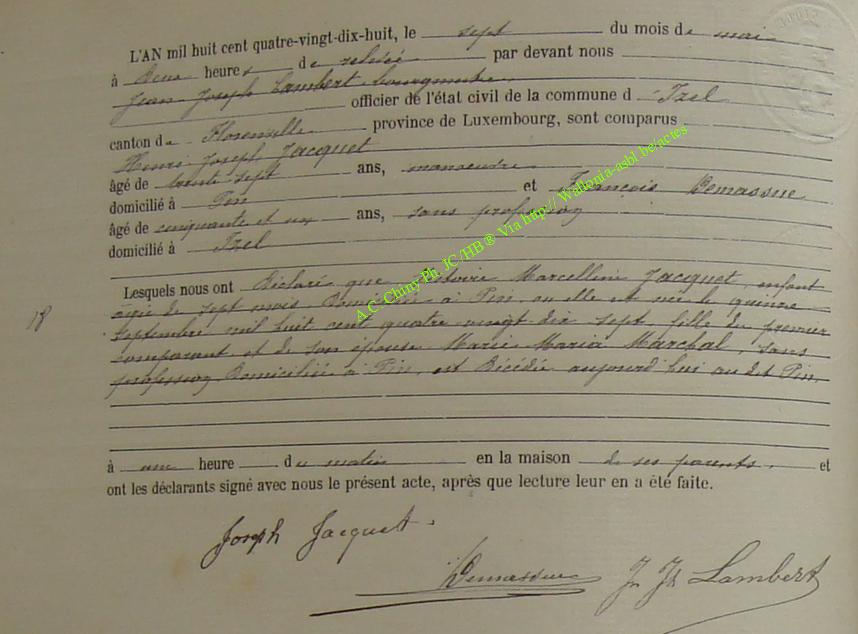 L'AN mil huit cent quatre-vingt-dix-huit, le sept du mois de mai
à deux heures de relevée par devant nous
Jean Joseph Lambert bourgmestre
officier de l'état civil de la commune d Izel
canton de Florenville province de Luxembourg, sont comparus
Henri Joseph Jacquet
âgé de trente sept ans, manoeuvre
domicilié à Pin et François Demassue
âgé de cinquante et un ans, sans profession
domicilié à Izel
Lesquels nous ont déclaré que Victoire Marcelline Jacquet, enfant
agée de sept mois, domiciliée à Pin, ou elle est née le quinze
septembre mil huit cent quatre vingt dix sept fille du premier
18
comparant et de son épouse Marie Maria Marchal, sans
profession, domiciliée à Pin, est décédée aujourd'hui au dit Pin,
à une heure du matin en la maison de ses parents, et
ont les déclarants signé avec nous le présent acte, après que lecture leur en a été faite.
Joseph Jacquet.
Demassue J. Jh Lambert
A.C. Chiny Ph. JC/HB ® Via http://Wallonia-asbl.be/actes